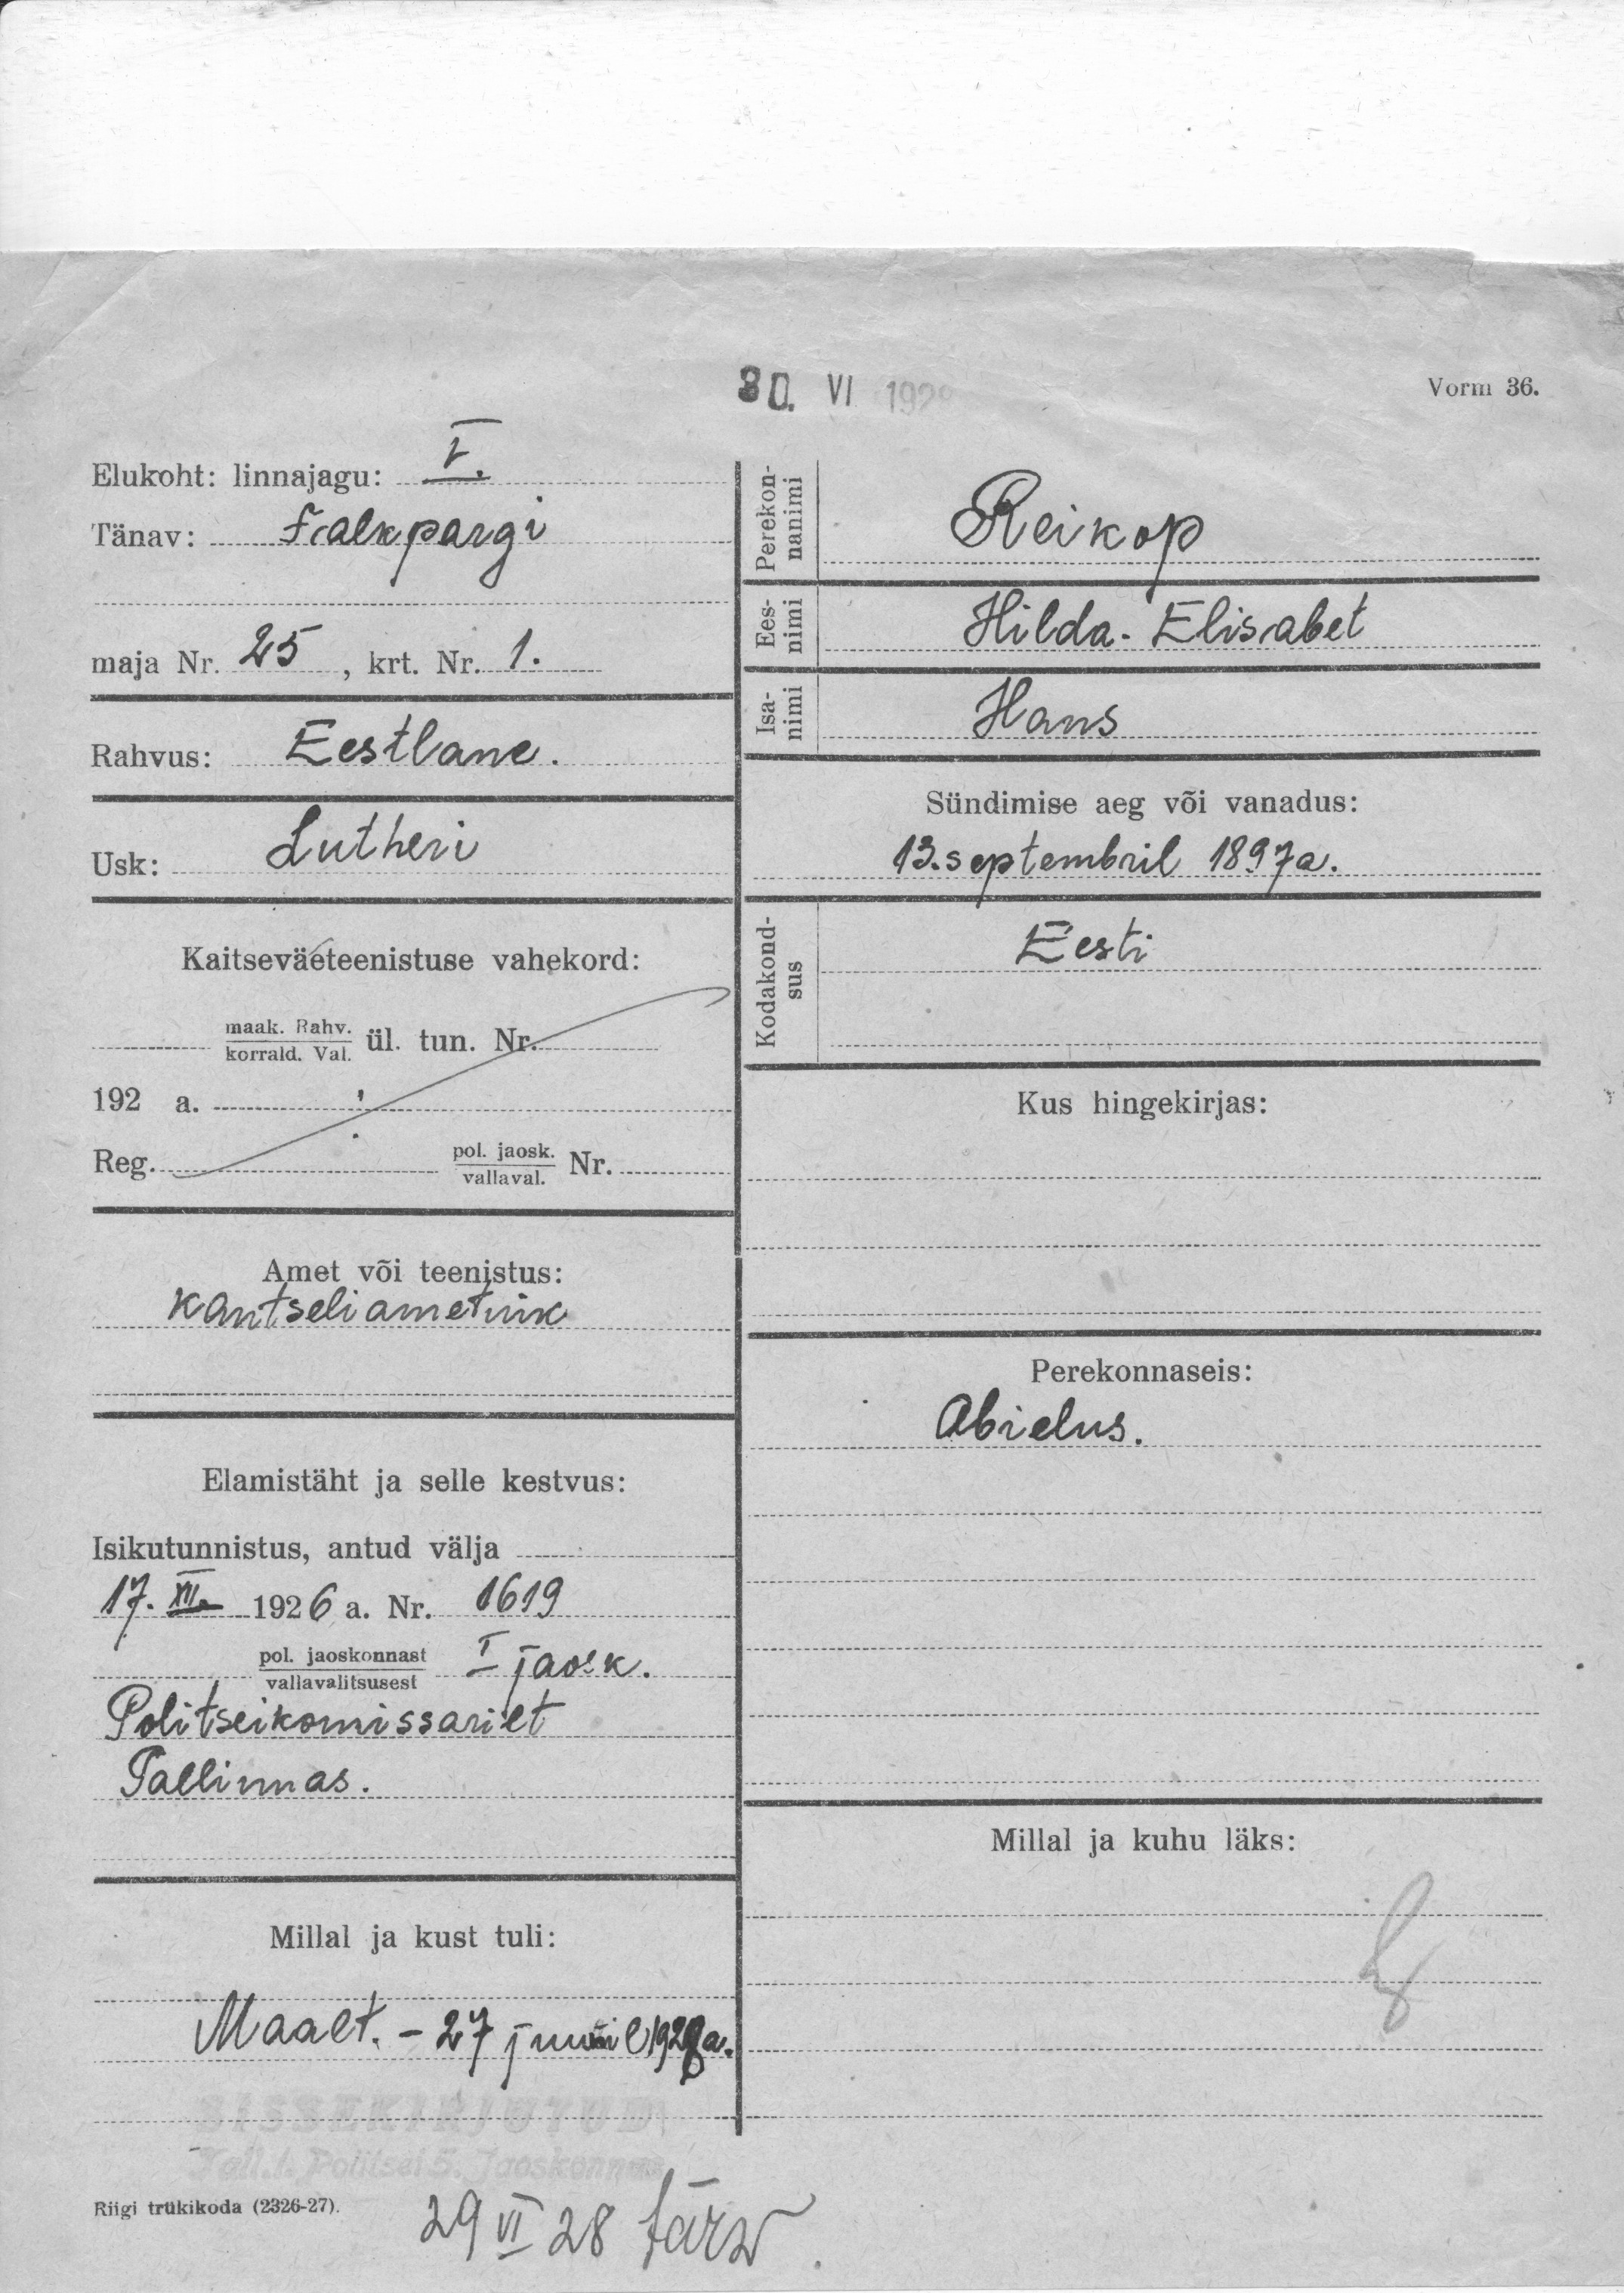 30. VI 192
Vorm 36.
Elukoht: linnajagu: V.
Tänav: Falkpargi
maja Nr. 25, krt. Nr. 1.
Rahvus: Eestlane.
Usk: Lutheri
Kaitseväeteenistuse vahekord:
maak. Rahv.
korrald. Val. ül. tun. Nr.
192 a.
Reg. pol. jaosk. Nr.
vallaval.
Amet või teenistus:
Kantseliametnik
Elamistäht ja selle kestvus:
Isikutunnistus, antud välja
17. XII. 1926 a. Nr. 1619
pol. jaoskonnast I jaosk.
vallavalitsusest
Politseikomissarilt
Tallinnas.
Millal ja kust tuli:
Maalt. - 27 juunil 1928 a.
SISSEKIRJUTUD
Tall.-l. Politsei 5. Jaoskonnas
Riigi trükikoda (2326-27).
29 VI 28
Perekon-
nanimi
Reikop
Ees-
nimi
Hilda-Elisabet
Isa-
nimi
Hans
Sündimise aeg või vanadus:
13. septembril 1897 a.
Kodakond-
sus
Eesti
Kus hingekirjas:
Perekonnaseis:
Abielus.
Millal ja kuhu läks: